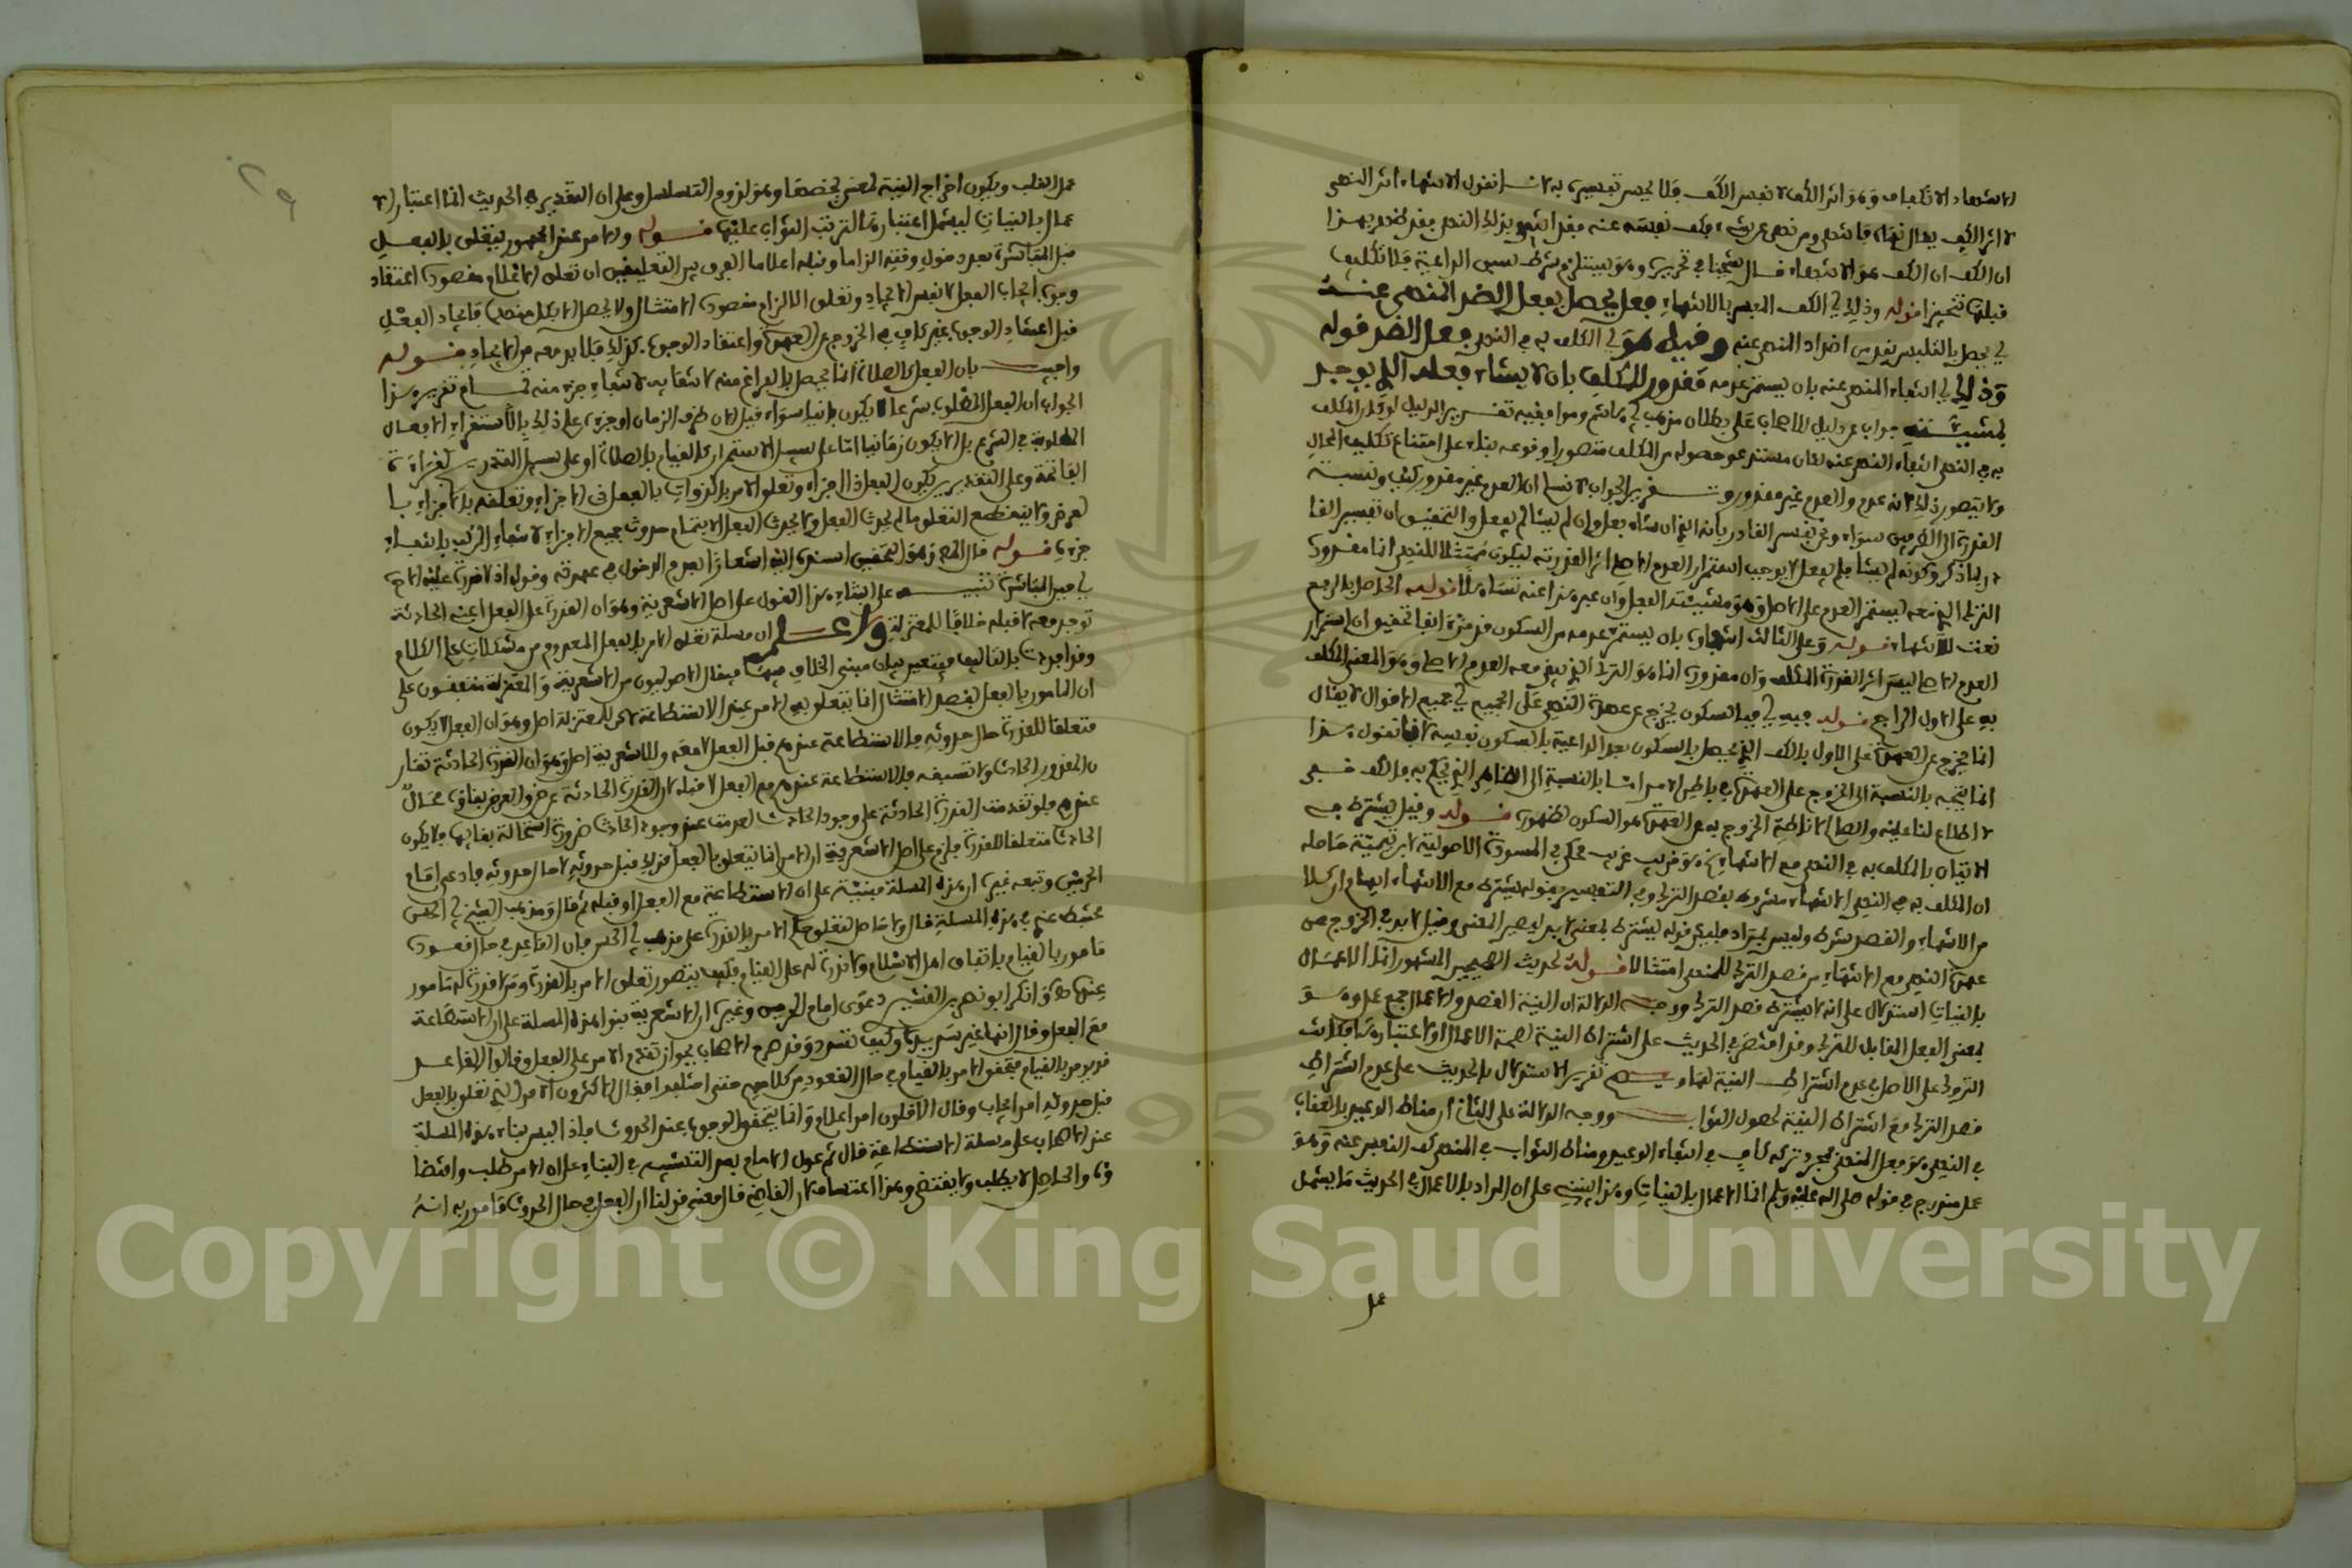 الانتهاء الانكفاف وهو اثر الكف لا نفس الكف فلا يحسن تفسيره به لانا نقول الانتهاء اثر النهي
لا اثر الكف يقال نهاه فانتهى ومن نهي عن شيء فكف نفسه عنه فقد انتهى
ان الكف هو الانتهاء قال شيخنا في تحريره وهو يستلزم شرط سبق الداعية فلا تكليف
قبلها تنجيزا قوله وذلك اي الكف المفسر بالانتهاء فعل يحصل بفعل الضد المنهي عنه
اي يحصل بالتلبس بضد من اضداد المنهي عنه وقيل هو اي المكلف به في النهي فعل الضد قوله
وذلك اي انتفاء المنهي عنه بان يستمر عدمه مقدور للمكلف بان لا يشاء فعله الذي يوجد
بمشيئته جواب عن دليل الاصحاب على بطلان مذهب ابي هاشم تقرير الدليل لو كان المكلف
به في النهي انتفاء المنهي عنه لكان مستدعى حصوله من المكلف متصورا وقوعه بناء على امتناع تكليف المحال
ولا يتصور ذلك لانه عدم والعدم غير مقدور وتقرير الجواب لا نسلم ان العدم غير مقدور كيف ونسبة
القدرة الى الطرفين سواء ونحن نفسر القادر بانه الذي ان شاء فعل وان لم يشا لم يفعل والتحقيق ان تفسير القا
در بما ذكر وكونه لم يشا فلم يفعل لا يوجب استمرار العدم الاصلي اثر القدرته ليكون ممتثلا للنهي انما مقدوره
الترك الذي معه يستمر العدم على الاصل وهو مشيئته الفعل وان عبر عنه تساهلا قوله الحاصل بالرفع
نعت للانتهاء قوله وعلى الثالث انتهاؤه بان يستمر عدمه من السكون قد مر انفا تحقيق ان استمرار
العدم الاصلي ليس اثر القدرة المكلف وان مقدوره انما هو الترك الذي يبقى معه العدم الاصلي وهو المعني المكلف
به على الاول الراجح قوله فبه اي فبالسكون يخرج عن عهدة النهي على الجميع اي جميع الاقوال لا يقال
انما يخرج عن العهدة على الاول بالكف الذي يحصل بالسكون بعد الداعية بالسكون نفسه لانا نقول هذا
انما يتجه بالنسبة الى الخروج على العهدة في باطن الامر اما بالنسبة الى الظاهر الذي يحكم به فالكف خفي
لا اطلاع لنا عليه والصالح لاناطة الخروج به عن العهدة هو السكون لظهوره قوله وقيل يشترط في
الاتيان بالمكلف به في النهي مع الانتهاء هو قريب غريب محكي في المسودة الاصولية لابن تيمية حاصله
ان المكلف به في النهي الانتهاء مشروط بقصد الترك وفي التعبير بقوله يشترط مع الانتهاء ايهام ان كلا
من الانتهاء والقصد شرط وليس بمراد فليكن قوله يشترط بمعنى لا بد ليصير المعنى وقيل لا بد في الخروج عن
عهدة النهي مع الانتهاء من قصد الترك للمنهي امتثالا قوله لحديث الصحيحين المشهور انما الاعمال
بالنيات استدلال على انه لا يشترط قصد الترك ووجه الدلالة ان النية القصد والاعمال جمع عمل وهو
بمعنى الفعل المقابل للترك وقد اقتضى الحديث على اشتراط النية لصحة الاعمال او لاعتبارها فكانت
التروك على الاصل في عدم اشتراط النية لها وتقرير الاستدلال بالحديث على عدم اشتراط
قصد الترك مع اشتراط النية لحصول الثواب ووجه الدلالة على الثاني ان مناط الوعيد بالعقاب
في النهي هو فعل المنهي فمجرد تركه كاف في انتفاء الوعيد ومناط الثواب في المنهي كف النفس عنه وهو
عمل مندرج في قوله صلى الله عليه وسلم انما الاعمال بالنيات وهذا ينبني على ان المراد بالاعمال في الحديث ما يشمل
عمل
عمل القلب ويكون اخراج النية لمعنى يخصها وهو لزوم التسلسل وعلى ان التقدير في الحديث انما اعتبار الا
عمال بالنيات ليشمل اعتبارها لترتب الثواب عليها قوله والامر عند الجمهور يتعلق بالفعل
قبل المباشرة بعد دخول وقته الزاما وقبله اعلاما الفرق بين التعليقين ان تعلق الاعلام مقصوده اعتقاد
وجوب ايجاب الفعل لا نفس الايجاد وتعلق الالزام مقصوده الامتثال ولا يحصل الا بكل منهما فايجاد الفعل
قبل اعتقاد الوجوب غير كاف في الخروج عن العهدة واعتقاد الوجوب كذلك فلا بد معه من الايجاد قوله
واجيب بان الفعل كالصلاة انما يحصل بالفراغ منه لانتفائه بانتفاء جزء منه تمام تقرير هذا
الجواب ان الفعل المطلوب شرعا لا يكون انيا سواء قيل الان طرف الزمان او جزءه على ذلك بالاستقراء الافعال
المطلوبة في الشرع بل لا يكون زمانيا اما على سبيل الاستمرار كالقيام بالصلاة او على سبيل التدريج كقراءة
الفاتحة وعلى التقديرين يكون الفعل ذا اجزاء وتعلق الامر بالذات بالفعل ذي الاجزاء وتعلقه بالاجزاء با
لعرض ولا ينقطع التعلق ما لم يحدث الفعل ولا يحدث الفعل الا بتمام حدوث جميع الاجزاء لانتفاء المركب بانتفاء
جزئه قوله قال المص وهو التحقيق اسنده اليه اشعارا بعدم الدخول في عهدته وقوله اذ لا قدرة عليه الا حـ
ـينئذ حين المباشرة تنبيه على ابتناء هذا القول على اصل الاشعرية وهو ان القدرة على الفعل اعني الحادثة
توجد معه لا قبله خلافا للمعتزلة واعلم ان مسئلة تعلق الامر بالفعل المعدوم من مشكلات علم الكلام
وقد افردت بالتاليف فيتعين بيان مبنى الخلاف فيها فيقال الاصوليون من الاشعرية والمعتزلة متفقون على
ان المامور بالفعل لقصد الامتثال انما يتعلق به الامر عند الاستطاعة لكن للمعتزلة اصل وهو ان الفعل لا يكون
متعلقا للقدرة حال حدوثه فالاستطاعة عندهم قبل الفعل لا معه وللاشعرية اصل وهو ان القدرة الحادثة تقار
ن المقدور الحادث ولا تسبقه فالاستطاعة عندهم مع الفعل لا قبله لان القدرة الحادثة عرض والعرض بقاؤه محال
عندهم فلو تقدمت القدرة الحادثة على وجود الحادث لعدمت عند وجود الحادث ضرورة استحالة بقائها فلا يكون
الحادث متعلقا للقدرة فلزم على اصل الاشعرية ان الامر انما يتعلق بالفعل قبل حدوثه لا حال حدوثه فادعى امام
الحرمين وتبعه غيره ان هذه المسئلة مبنية على ان الاستطاعة مع الفعل او قبله ثم قال ومذهب الشيخ ابي الحسن
مختبط عنه في هذه المسئلة قال ولا حاصل لتعلق حكم الامر بالقدرة على مذهب ابي الحسن فان القاعد في حال قعوده
مامور بالقيام باتفاق اهل الاسلام ولا قدرة له على القيام فكيف يتصور تعلق الامر بالقدرة ومن لا قدرة له مامور
عندها وانكر ابو نصر القشيري دعوى امام الحرمين وغيره ان الاشعرية بنوا هذه المسئلة على ان الاستطاعة
مع الفعل وقال انها غير سديدة وكيف تسدد وقد صرح الاصحاب بجواز تقدم الامر على الفعل وقالوا القاعد
قد يؤمر بالقيام فتحقق الامر بالقيام في حال القعود من كلامهم حتى اختلفوا فقال الاكثرون الامر الذي تعلق بالفعل
قبل حدوثه امر ايجاب وقال الاقلون امر اعلام وانما يتحقق الوجوب عند الحدوث فاذا ليس بناء هذه المسئلة
عند الاصحاب على مسئلة الاستطاعة قال ثم عول الامام بعد التشبيب في البناء على ان الامر طلب واقتضا
ؤه والحاصل لا يطلب ولا يقتضى وهذا القاضي قال معنى قولنا ان الفعل في حال الحدوث مامور به انه